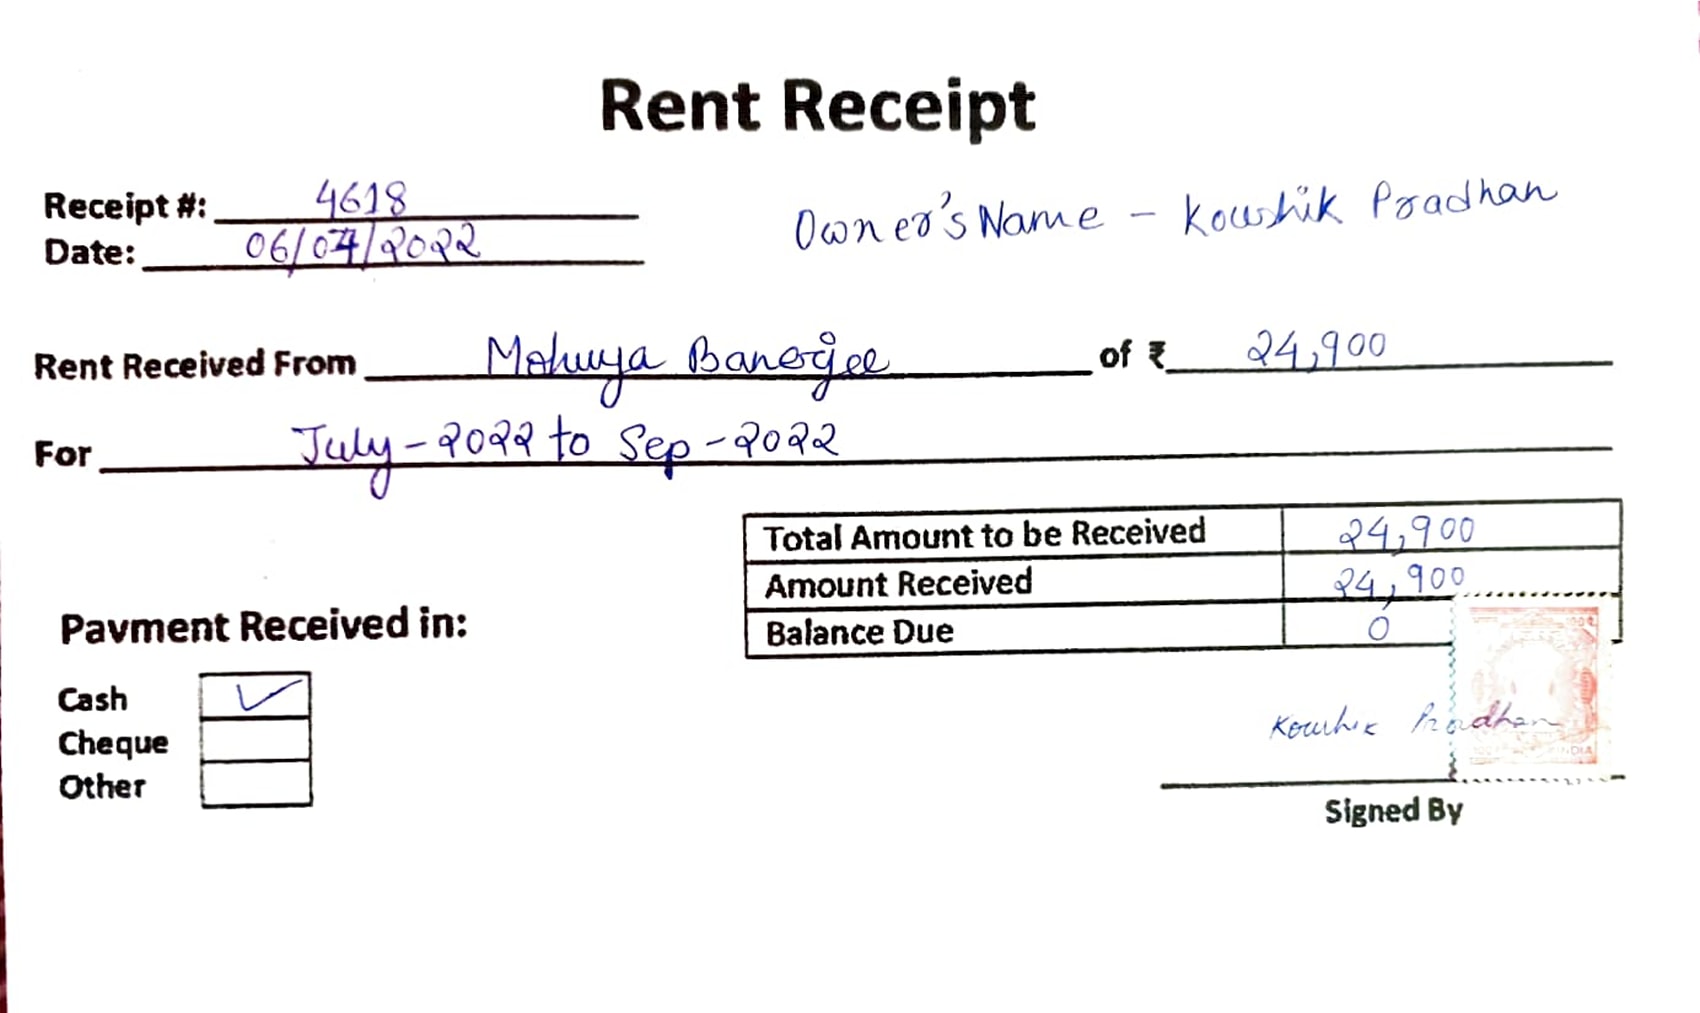 Rent Receipt
Receipt #: 4618
Owner's Name - Koushik Pradhan
Date: 06/07/2022
Rent Received From Mohuya Banerjee of ₹ 24,900
For July-2022 to Sep-2022
Total Amount to be Received 24,900
Amount Received 24,900
Balance Due 0
Payment Received in:
Cash ✓
Cheque
Other
Koushik Pradhan
INDIA
Signed By